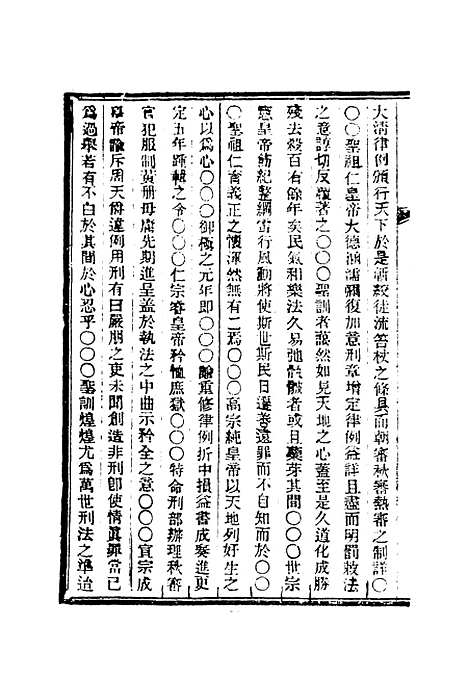 大淸律例頒行天下於是斬絞徒流笞杖之條具而朝審秋審熱審之制詳〇
〇〇聖祖仁皇帝大德涵濡飜復加意刑章增定律例益詳且盡而明罰敕法
之意諄切反覆著之〇〇〇聖訓者藹然如見天地之心蓋至是久道化成勝
殘去殺百有餘年矣民氣和樂法久易弛骫骳者或且蘖芽其間〇〇〇世宗
憲皇帝飭紀整綱雷行風動將使斯世斯民日遷善遠罪而不自知而於〇〇
〇聖祖仁育義正之懷渾然無有二焉〇〇〇高宗純皇帝以天地列好生之
心以爲心〇〇〇御極之元年卽〇〇〇諭重修律例折中損益書成奏進更
定五年踵輯之令〇〇〇仁宗睿皇帝矜恤庶獄〇〇〇特命刑部辦理秋審
官犯服制黃册毋庸先期進呈蓋於執法之中曲示矜全之意〇〇〇宣宗成
皇帝諭斥周天爵違例用刑有曰嚴刑之吏未聞創造非刑卽使情眞罪當已
爲過舉若有不白於其間於心忍乎〇〇〇聖訓煌煌尤爲萬世刑法之準迨